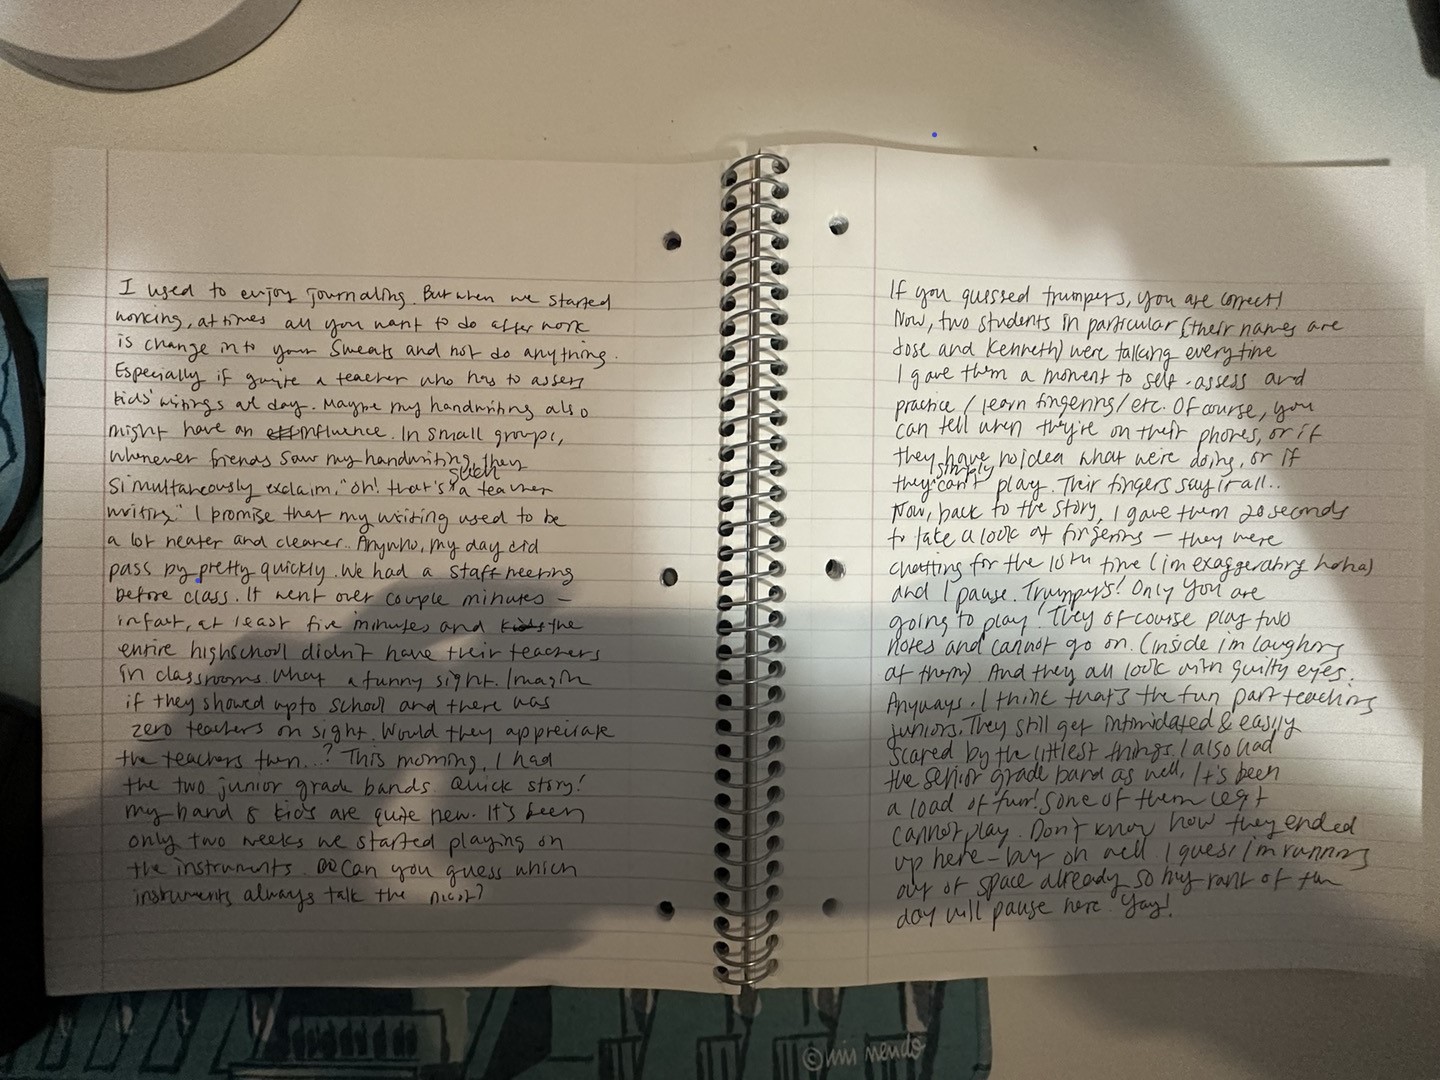 I used to enjoy journaling. But when we started
working, at times all you want to do after work
is change into your sweats and not do anything.
Especially if you're a teacher who has to assess
kids' writings all day. Maybe my handwriting also
might have an influence. In small groups,
whenever friends saw my handwriting, they
simultaneously exclaim, "oh! that's such a teacher
writing." I promise that my writing used to be
a lot neater and cleaner.. Anywho, my day did
pass by pretty quickly. We had a staff meeting
before class. It went over couple minutes —
infact, at least five minutes and the
entire highschool didn't have their teachers
in classrooms. What a funny sight. Imagin
if they showed upto school and there was
zero teachers on sight. Would they appreciate
the teachers then...? This morning, I had
the two junior grade bands. Quick story!
my band 8 kids are quite new. It's been
only two weeks we started playing on
the instruments. Can you guess which
instruments always talk the most?
If you guessed trumpers, you are correct!
Now, two students in particular (their names are
Jose and Kenneth) were talking everytime
I gave them a moment to self-assess and
practice / learn fingering/etc. Of course, you
can tell when they're on their phones, or if
they have no idea what we're doing, or if
they simply can't play. Their fingers say it all..
Now, back to the story, I gave them 20 seconds
to take a look at fingering — they were
chatting for the 10th time (im exaggerating haha)
and I pause. Trumpets! Only you are
going to play! They of course play two
notes and cannot go on. (inside i'm laughing
at them) And they all look with guilty eyes.
Anyways. I think that's the fun part teaching
juniors. They still get intimidated & easily
scared by the littlest things. I also had
the senior grade band as well. It's been
a load of fun! Some of them legit
cannot play. Don't know how they ended
up here — but oh well. I guess I'm running
out of space already so my rant of the
day will pause here. Yay!
©mis nendo